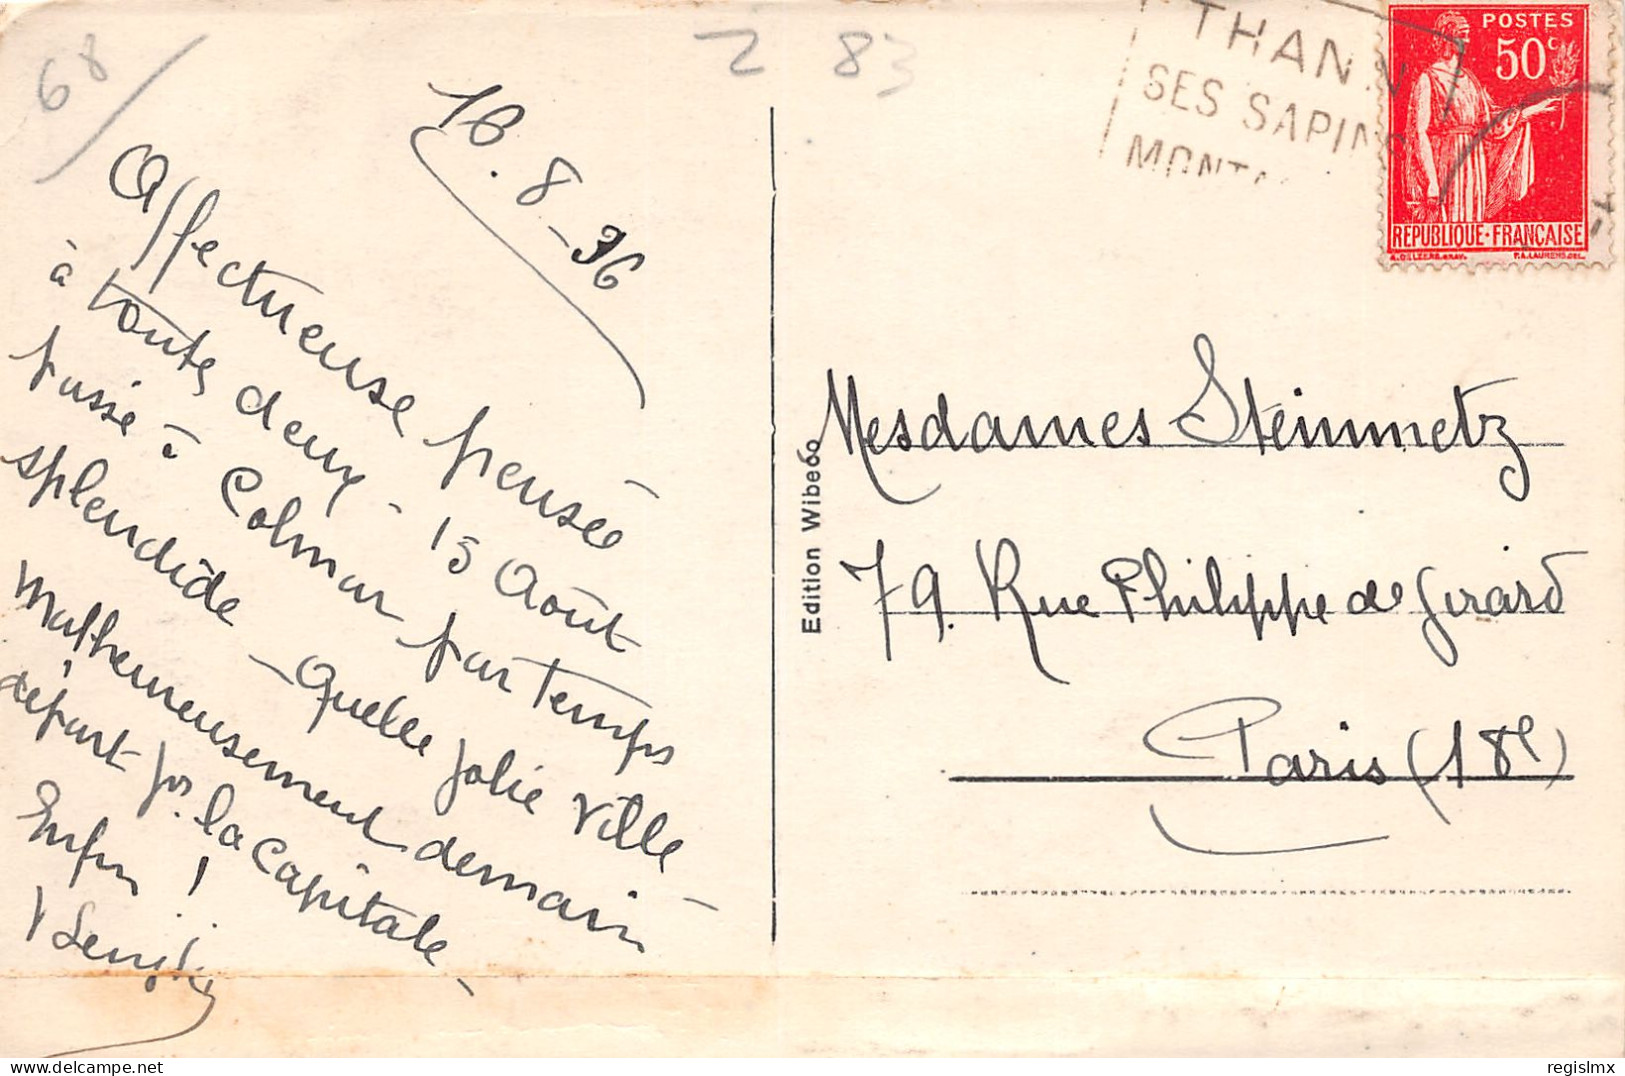 68
2 83
16.8-36
Affectueuse pensée
à toutes deux - 15 Août
passé à Colmar par temps
splendide - Quelle jolie ville -
Malheureusement demain
départ pr. la capitale -
Enfin !
THANN
SES SAPINS
MONTA
POSTES
50c
REPUBLIQUE·FRANÇAISE
A.DELZERS.GRAV. P.A.LAURENS.DEL.
Edition Wibeéo
Mesdames Steinmetz
79. Rue Philippe de Girard
Paris (18e)
regislmx